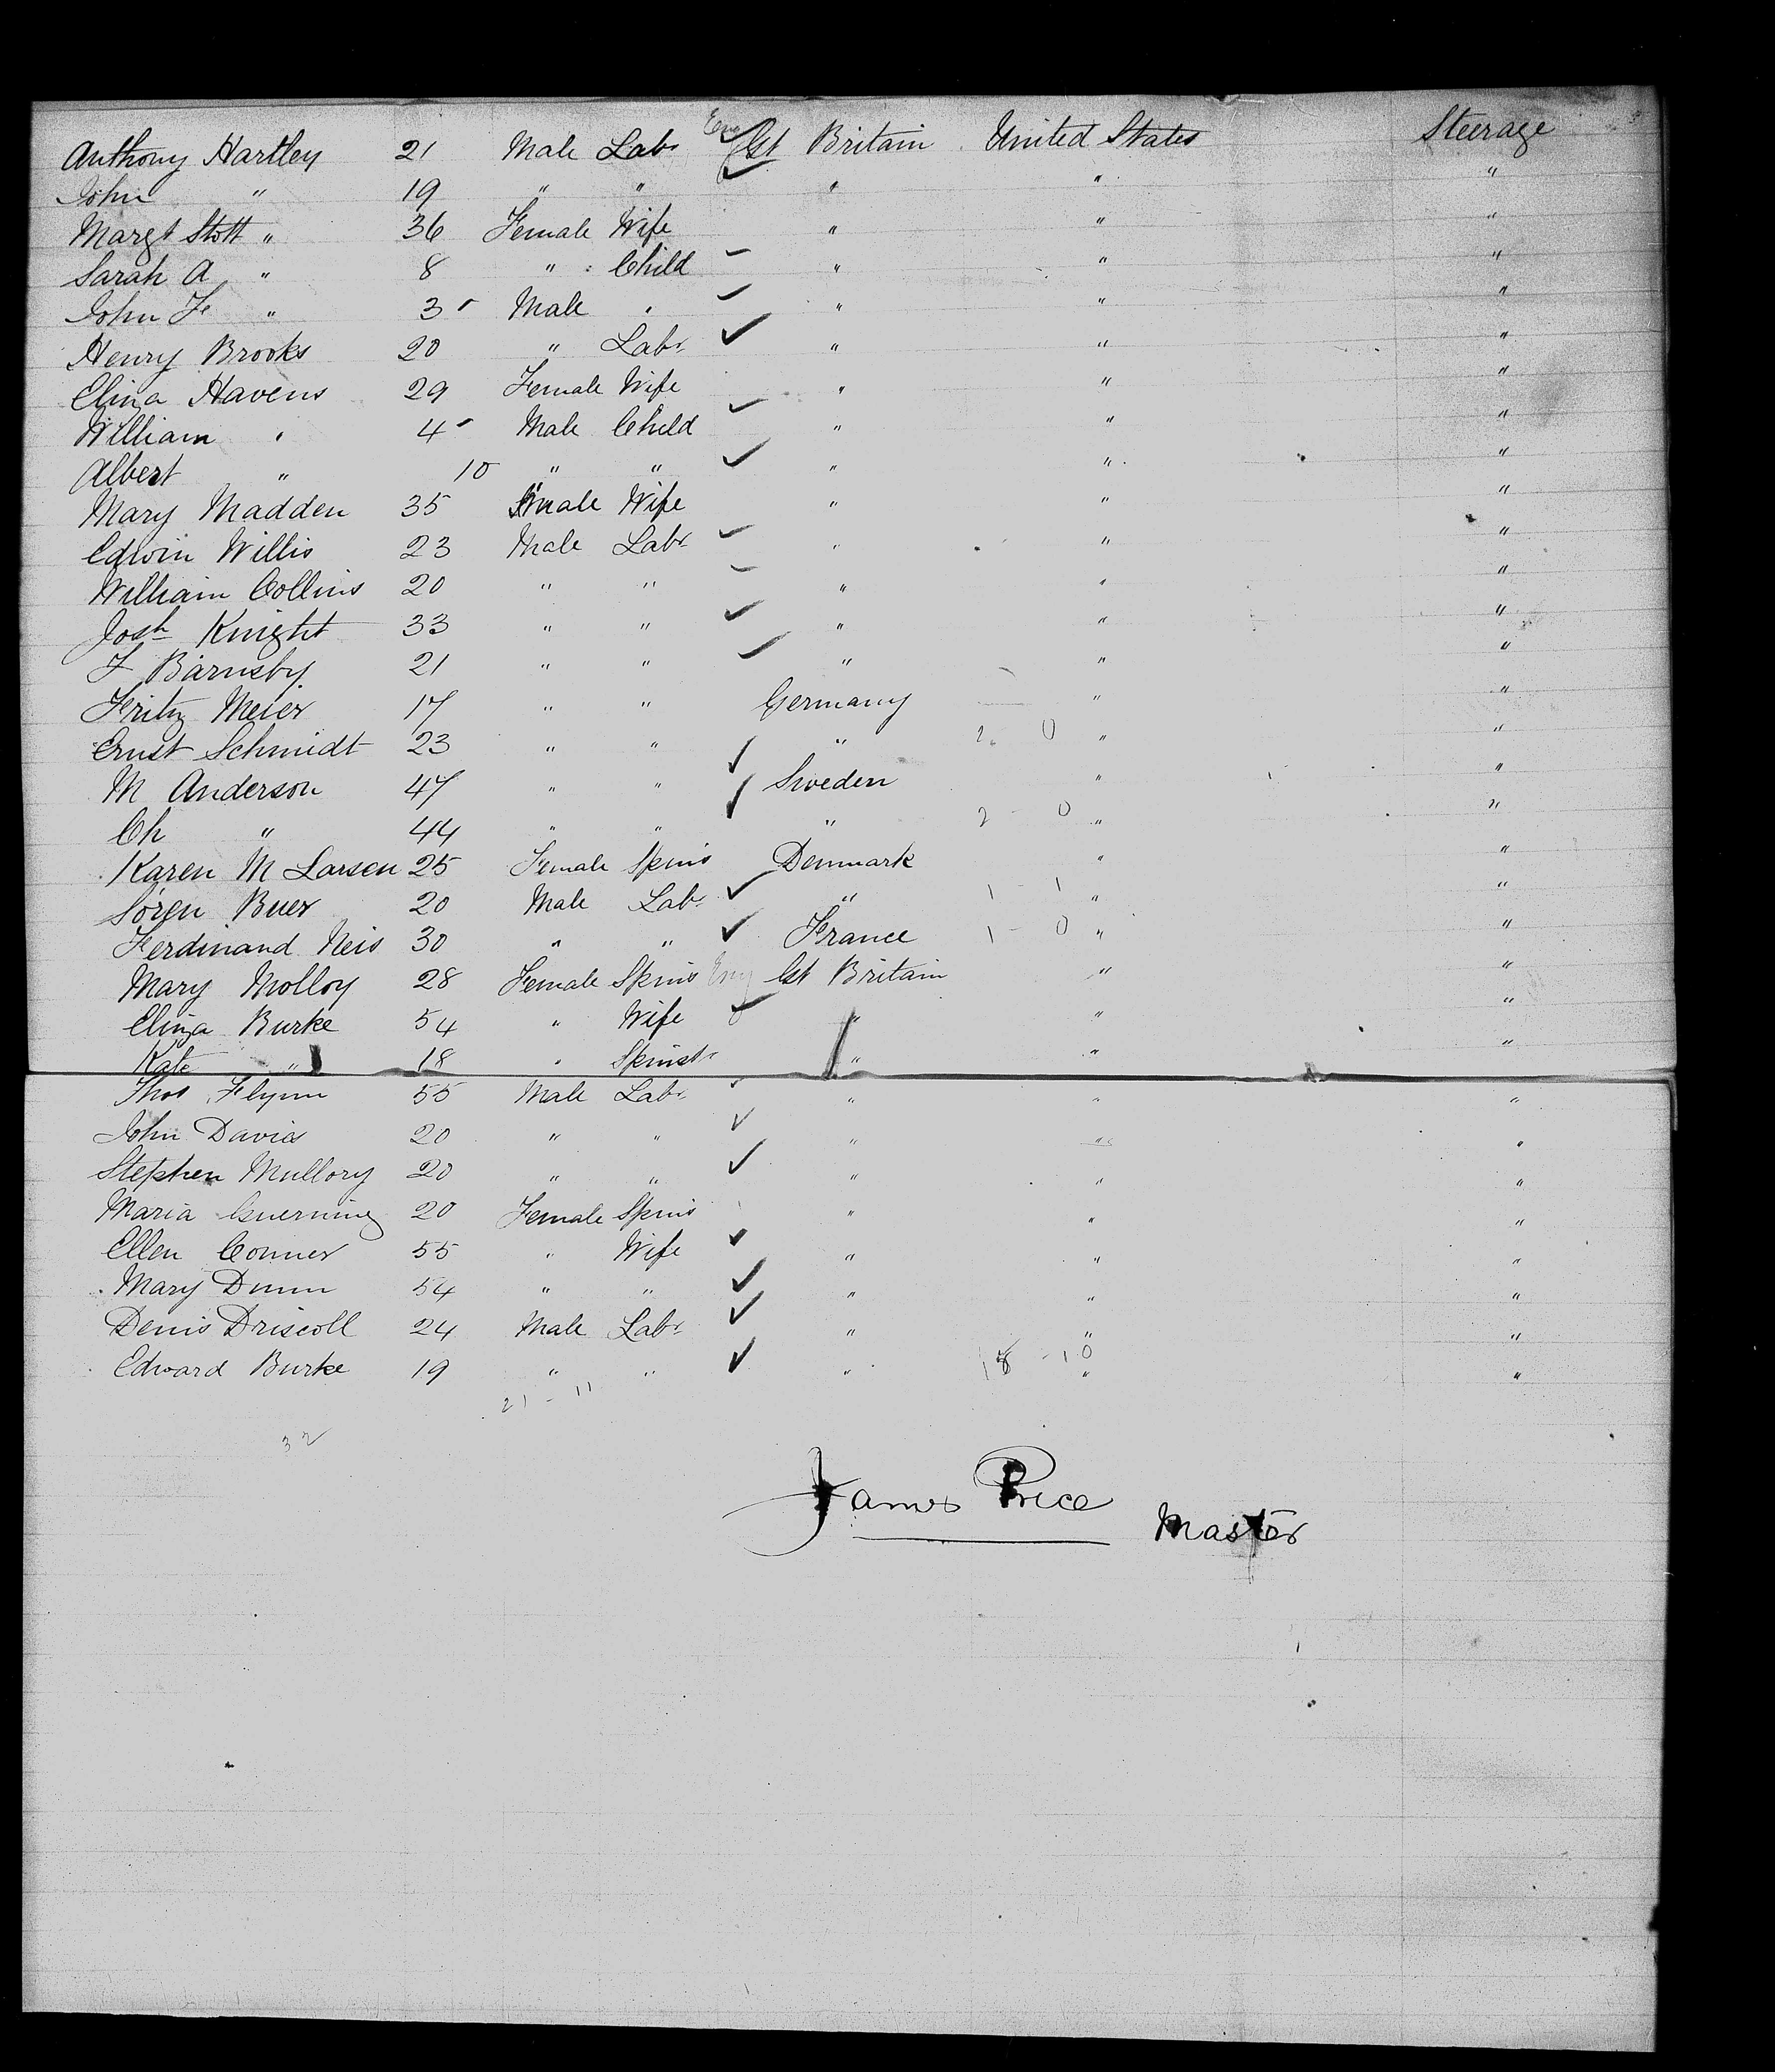 Anthony Hartley 21 Male Labr Eng Gt Britain United States Steerage
John " 19 " " " " "
Margt Stott " 36 Female Wife " " "
Sarah A " 8 " Child " " "
John F " 3 Male " " " "
Henry Brooks 20 " Labr " " "
Eliza Havens 29 Female Wife " " "
William " 4 Male Child " " "
Albert " 10 " " " " "
Mary Madden 35 Female Wife " " "
Edwin Willis 23 Male Labr " " "
William Collins 20 " " " " "
Josh Knight 33 " " " " "
F Barnsby 21 " " " " "
Fritz Meier 17 " " Germany " "
Ernst Schmidt 23 " " " 2 0 " "
M Anderson 47 " " Sweden " "
Ch " 44 " " " 2 - 0 " "
Karen M Larsen 25 Female Spins Denmark " "
Sören Buer 20 Male Labr " 1 - 1 " "
Ferdinand Neis 30 " " France 1 - 0 " "
Mary Molloy 28 Female Spins Eng Gt Britain " "
Eliza Burke 54 " Wife " " "
Kate " 18 " Spinstr " " "
Thos Flynn 55 Male Labr " " "
John Davies 20 " " " " "
Stephen Mullory 20 " " " " "
Maria 20 Female Spins " " "
Ellen Conner 55 " Wife " " "
Mary Dunn 54 " " " " "
Denis Driscoll 24 Male Labr " " "
Edward Burke 19 " " " 18 - 10 " "
21 - 11
32
James Price Master